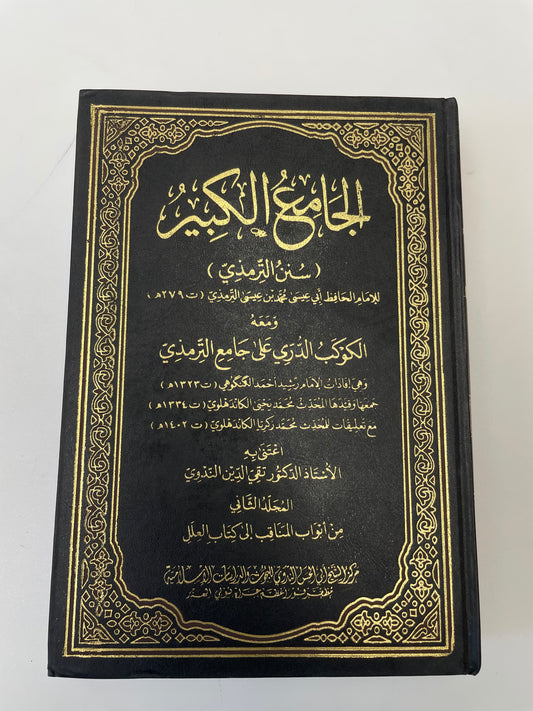 الجَامِعُ الكَبِيرُ
( سُنَنُ التِّرمِذِيّ )
للإمَام الحَافِظ أَبي عِيسَى مُحمَّد بن عِيسَى التِّرمذِيّ ( ت ٢٧٩هـ )
وَمَعَهُ
الكَوكَبُ الدُّرِّي عَلى جَامِعِ التِّرمِذِيّ
وَهِيَ إفَادَاتُ الإمَام رَشِيد أحمَد الكَنكَوهِي ( ت ١٣٢٣هـ )
جمَعَهَا وَقَيَّدَهَا المُحَدِّثُ مُحَمَّد يَحيَى الكَاندَهلَوِيّ ( ت ١٣٣٤هـ )
مَع تَعلِيقَات المُحَدِّث مُحَمَّد زَكَرِيَّا الكَاندهلَوِيّ ( ت ١٤٠٢هـ )
اعْتَنَى بِهِ
الأُسْتَاذ الدُّكتُور تَقِيّ الدِّين النَّدوِيّ
المُجَلَّدُ الثَّانِي
مِنْ أَبوَاب المَنَاقِب إلى كِتَابِ العِلَل
مركز الشيخ أبي الحسن الندوي للبحوث والدراسات الإسلامية
مظفرفور أعظم جراه يوبي الهند